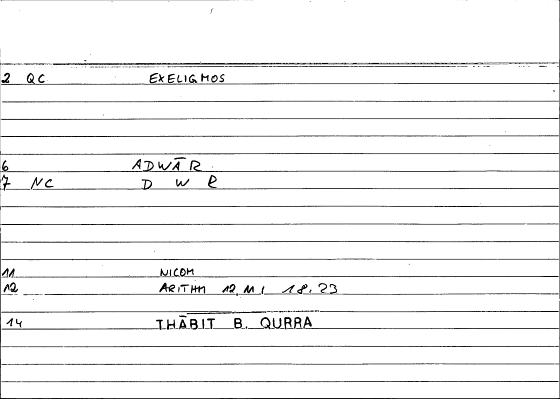 2 QC EXELIGMOS
6 ADWĀR
7 NC D W R
11 NICOM
12 ARITHM 12,11; 18.23
14 THĀBIT B. QURRA